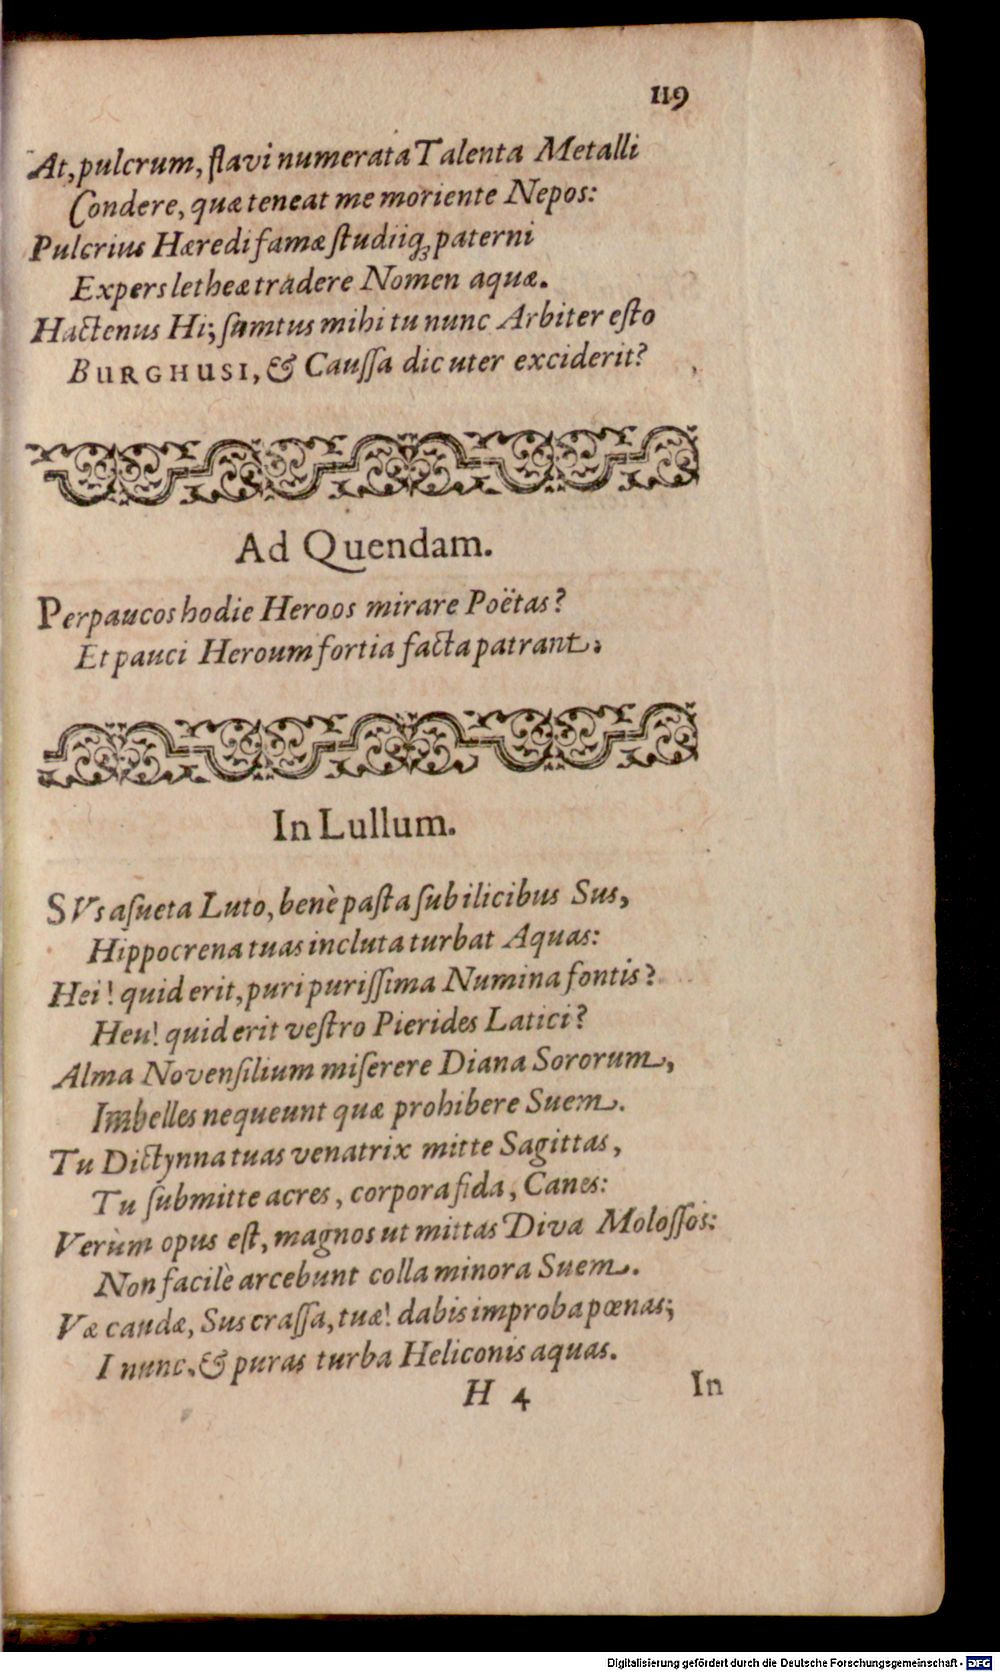 119
At, pulcrum, flavi numerata Talenta Metalli
Condere, quæ teneat me moriente Nepos:
Pulcrius Hæredi famæ ſtudiiq; paterni
Expers letheæ tradere Nomen aquæ.
Hactenus Hi; ſumtus mihi tu nunc Arbiter eſto
BURGHUSI, & Cauſſa dic uter exciderit?
Ad Quendam.
Perpaucos hodie Heroos mirare Poëtas?
Et pauci Heroum fortia facta patrant.
In Lullum.
SVs aſueta Luto, benè paſta ſub ilicibus Sus,
Hippocrena tuas incluta turbat Aquas:
Hei! quid erit, puri puriſſima Numina fontis?
Heu! quid erit veſtro Pierides Latici?
Alma Novenſilium miſerere Diana Sororum,
Imbelles nequeunt quæ prohibere Suem.
Tu Dictynna tuas venatrix mitte Sagittas,
Tu ſubmitte acres, corpora fida, Canes:
Verùm opus eſt, magnos ut mittas Diva Moloſſos:
Non facilè arcebunt colla minora Suem.
Væ caudæ, Sus craſſa, tuæ! dabis improba pœnas;
I nunc, & puras turba Heliconis aquas.
H 4 In
Digitalisierung gefördert durch die Deutsche Forschungsgemeinschaft - DFG